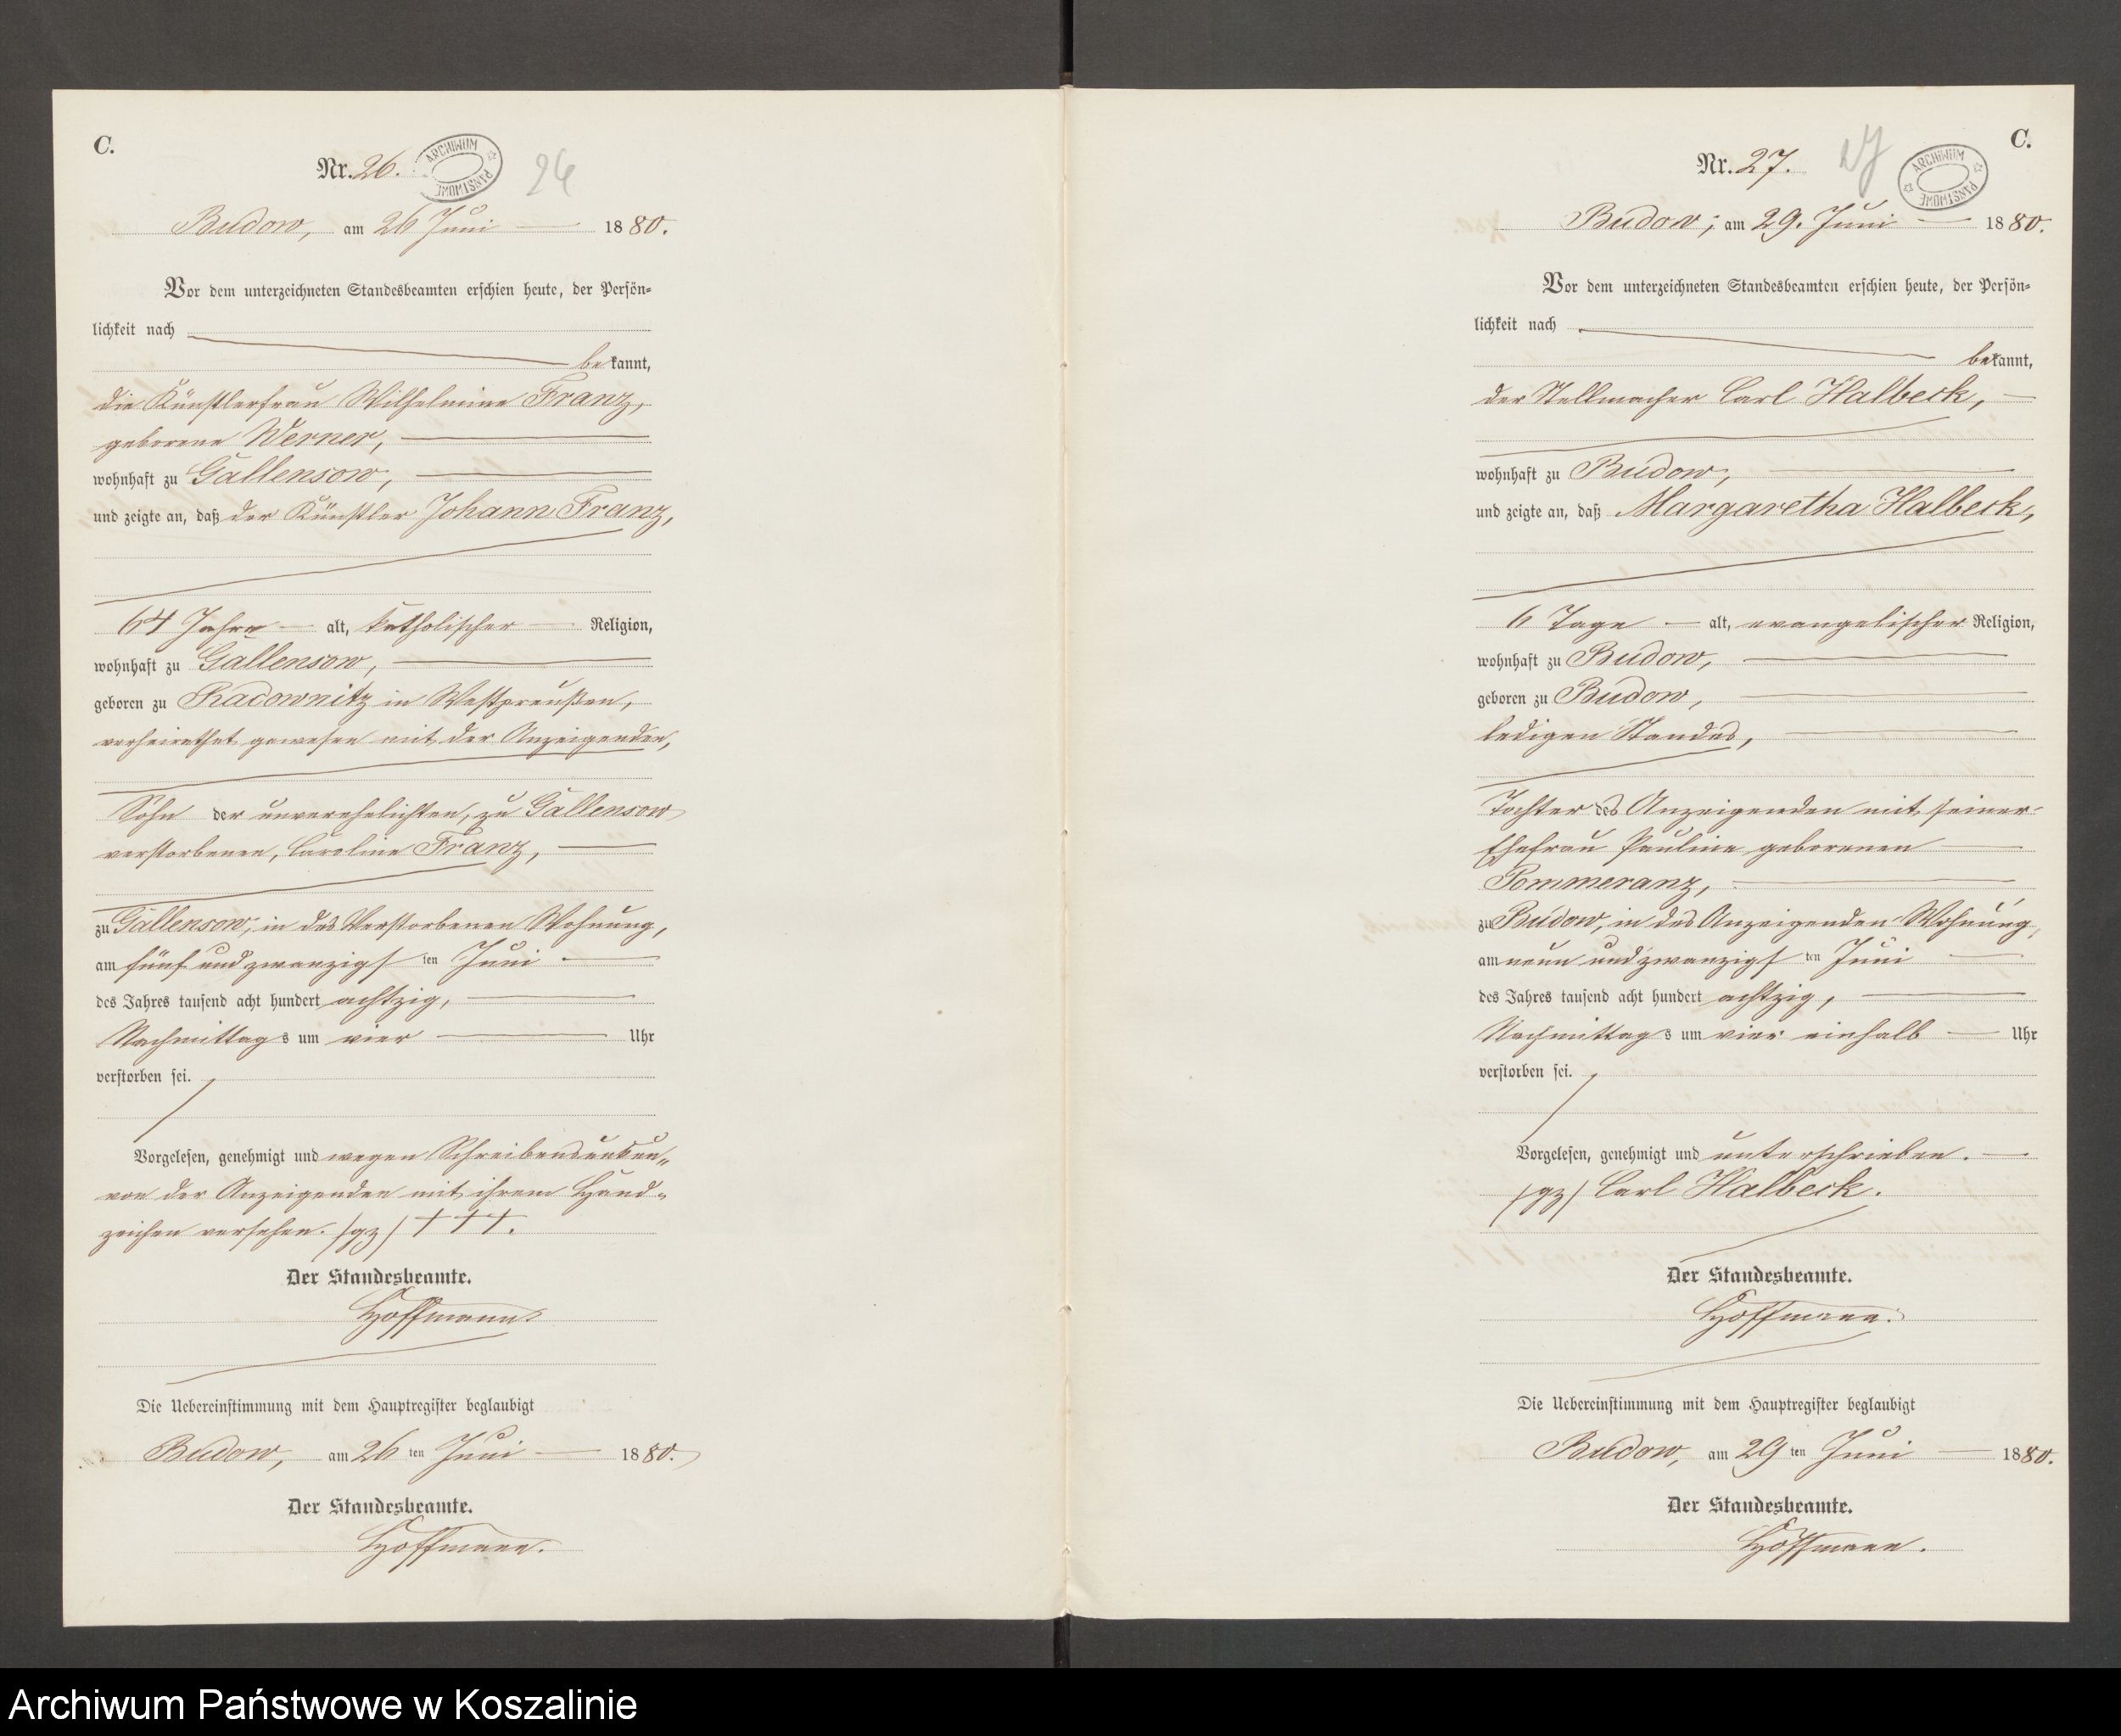 C.
Nr. 26.
ARCHIWUM PAŃSTWOWE
26
Budow, am 26 Juni 1880.
Vor dem unterzeichneten Standesbeamten erschien heute, der Persön-
lichkeit nach
bekannt,
die Künstlerfrau Wilhelmine Franz,
geborene Werner,
wohnhaft zu Gallensow,
und zeigte an, daß der Künstler Johann Franz,
64 Jahre alt, katholischer Religion,
wohnhaft zu Gallensow,
geboren zu Radownitz in Westpreußen,
verheirathet gewesen mit der Anzeigenden,
Sohn der unverehelichten, zu Gallensow
verstorbenen, Caroline Franz,
zu Gallensow, in des Verstorbenen Wohnung,
am fünf und zwanzigsten Juni
des Jahres tausend acht hundert achtzig,
Nachmittags um vier Uhr
verstorben sei.
Vorgelesen, genehmigt und wegen Schreibensunkun-
von der Anzeigenden mit ihrem Hand-
zeichen versehen. /gz/ +++.
Der Standesbeamte.
Hoffmann.
Die Uebereinstimmung mit dem Hauptregister beglaubigt
Budow, am 26 ten Juni 1880.
Der Standesbeamte.
Hoffmann.
C.
Nr. 27.
27
ARCHIWUM PAŃSTWOWE
Budow, am 29. Juni 1880.
Vor dem unterzeichneten Standesbeamten erschien heute, der Persön-
lichkeit nach
bekannt,
der Stellmacher Carl Halbeck,
wohnhaft zu Budow,
und zeigte an, daß Margaretha Halbeck,
6 Tage alt, evangelischer Religion,
wohnhaft zu Budow,
geboren zu Budow,
ledigen Standes,
Tochter des Anzeigenden mit seiner
Ehefrau Pauline geborenen
Pommeranz,
zu Budow, in des Anzeigenden Wohnung,
am neun und zwanzigsten Juni
des Jahres tausend acht hundert achtzig,
Nachmittags um vier einhalb Uhr
verstorben sei.
Vorgelesen, genehmigt und unterschrieben.
/gz/ Carl Halbeck.
Der Standesbeamte.
Hoffmann.
Die Uebereinstimmung mit dem Hauptregister beglaubigt
Budow, am 29 ten Juni 1880.
Der Standesbeamte.
Hoffmann.
Archiwum Państwowe w Koszalinie